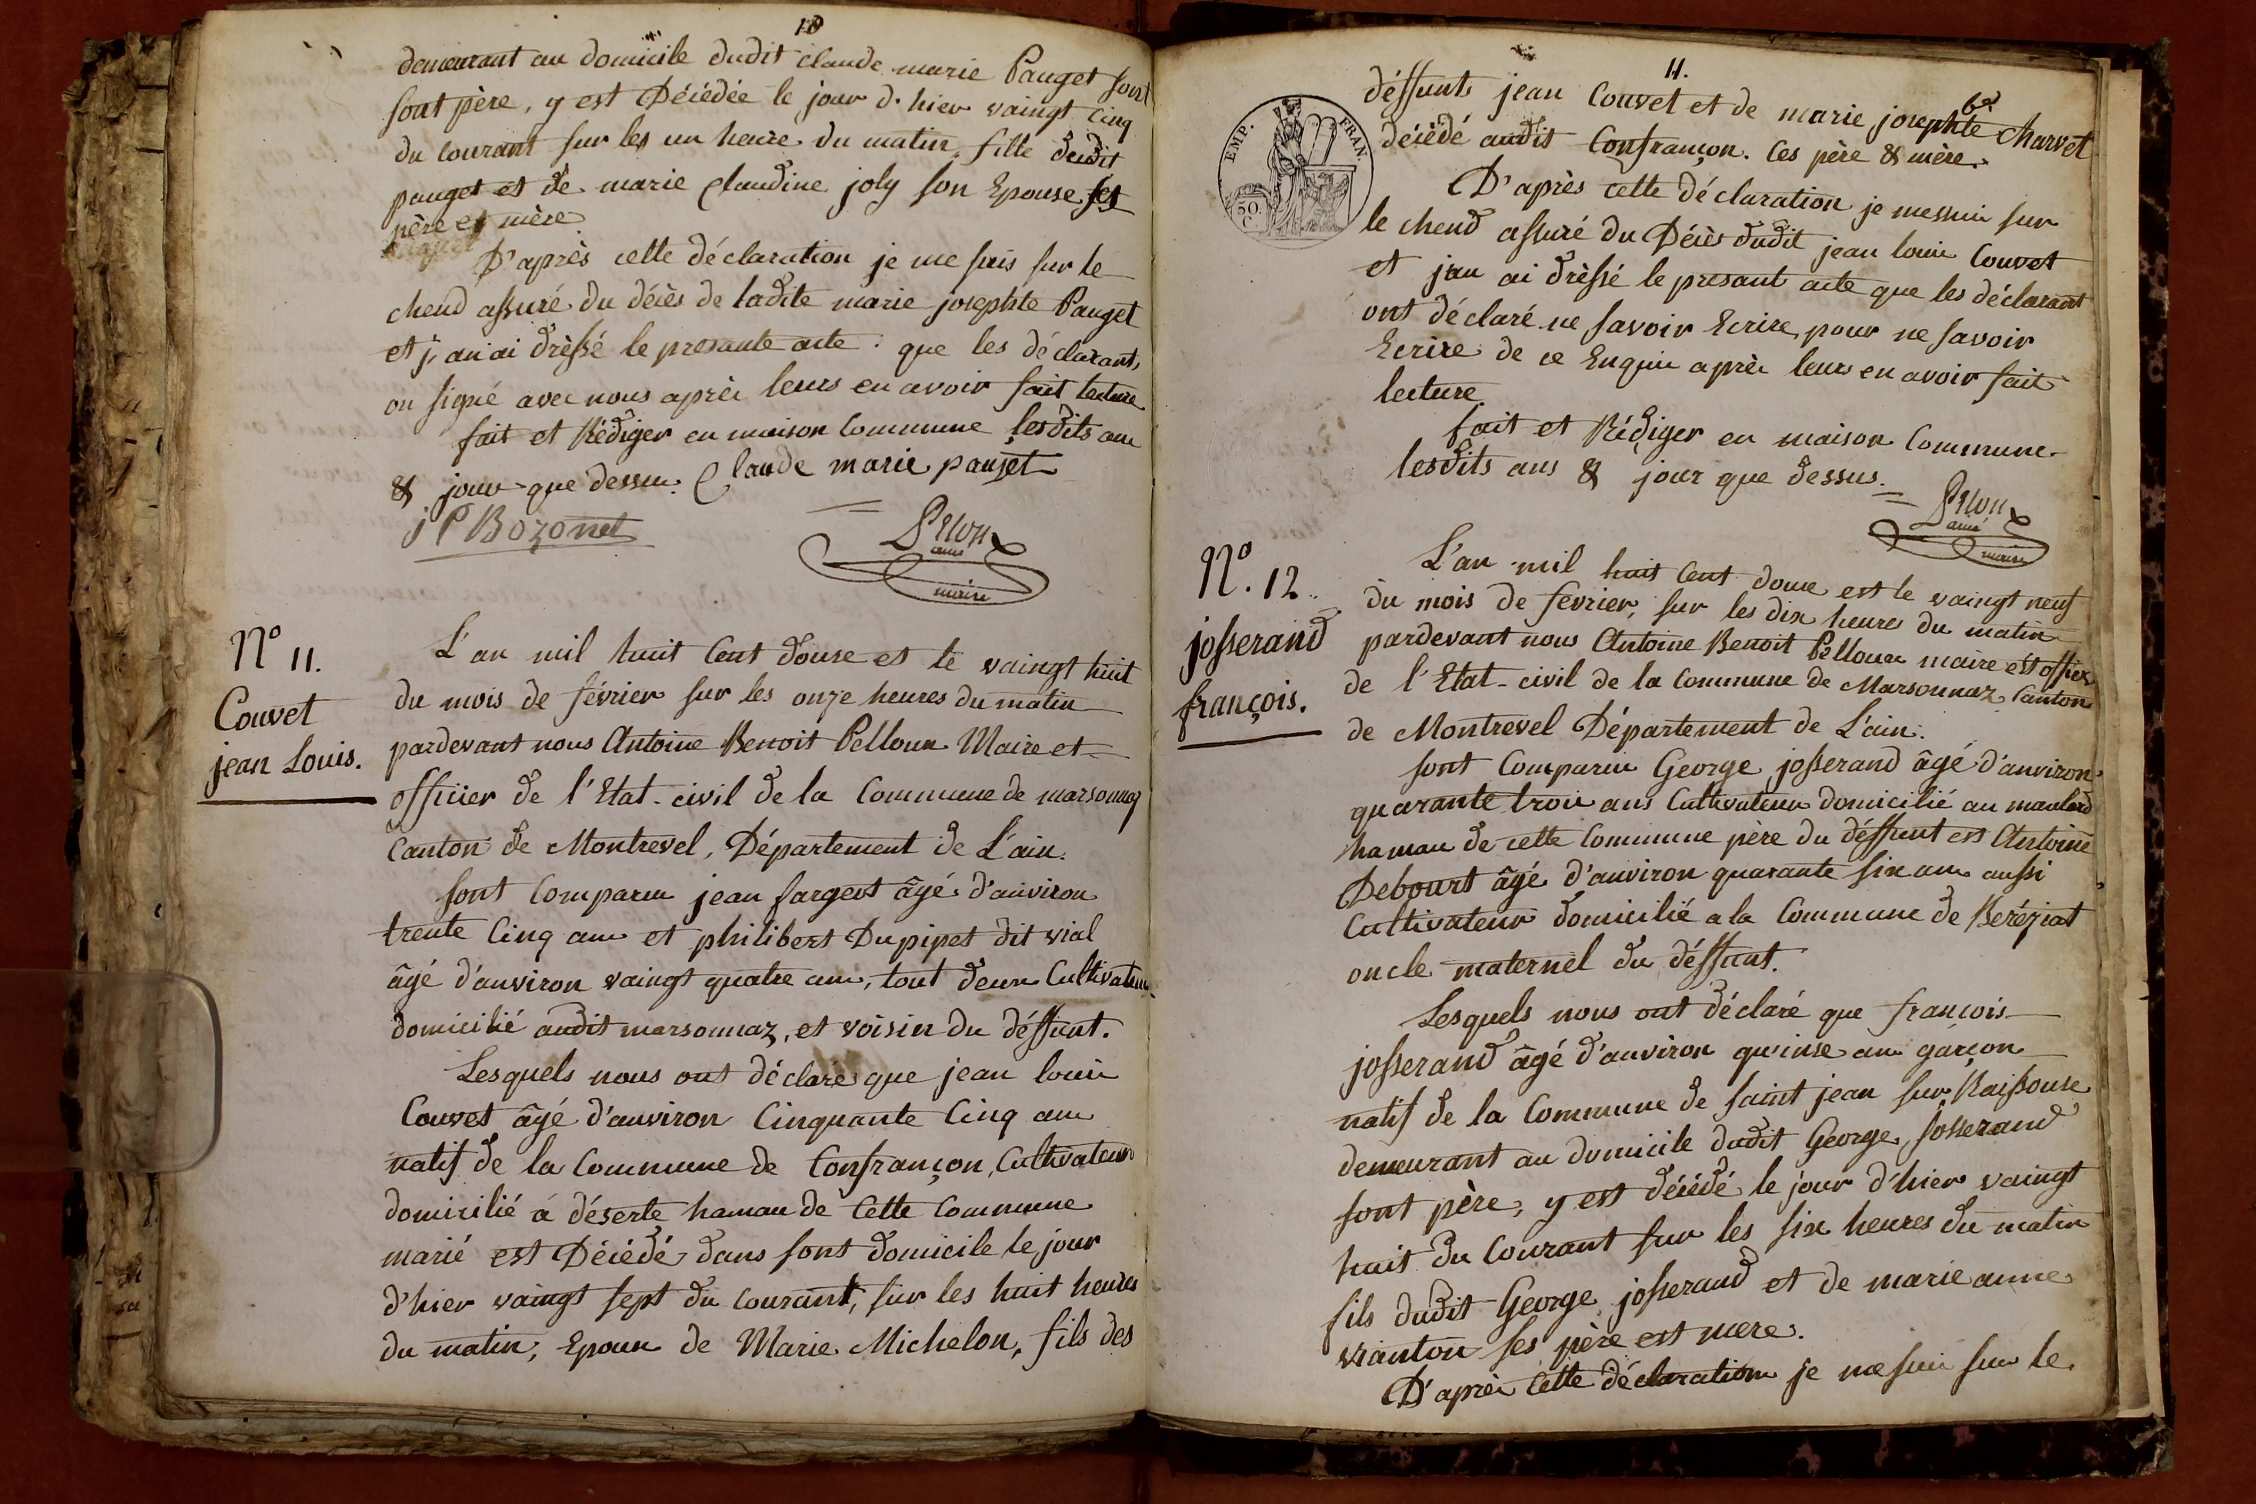 10
demeurant au domicile dudit claude marie Pauget sont
sont père, y est Décédée le jour d'hier vaingt cinq
du courant sur les un heure du matin, fille dudit
pauget et de marie Claudine joly son Epouse ses
père et mère
D'après cette déclaration je me suis sur le
chend assuré du décès de ladite marie josephte Pauget
et j'an ai drèssé le presante acte que les déclarant,
on signé avec nous après leurs en avoir fait lecture
fait et Rédiger en maison Commune lesdits an
& jour que dessus. Claude marie pauget
j P Bozonet
Pelloux
ainé
maire
Nº 11.
Couvet
jean Louis.
L'an mil huit Cent douse et le vaingt huit
du mois de février sur les onze heures du matin
pardevant nous Antoine Benoit Pelloux Maire et
officier de l'Etat-civil de la Commune de marsonnaz
Canton de Montrevel, Département de L'ain.
sont Comparus jean fargeot âgé d'anviron
trente Cinq ans et philibert Dupipet dit vial
âgé d'anviron vaingt quatre ans, tout deux Cultivateur
domicilié audit marsonnaz, et voisin du déffunt.
Lesquels nous ont déclaré que jean louis
Couvet âgé d'anviron Cinquante Cinq ans
natif de la Commune de Confrançon, Cultivateur
domicilié à déserte hamau de Cette Commune
marié est Décédé dans sont domicile le jour
d'hier vaingt sept du courant, sur les huit heures
du matin, Epoux de Marie Michelon, fils des
11.
EMP. FRAN.
50
C.
déffunts jean Couvet et de marie josephte Charvet
décédé audit Confrançon. Ces père & mère.
D'après cette déclaration je messuis sur
le chend assuré du Décès dudit jean louis Couvet
et j'an ai drèssé le presant acte que les déclarant
ont déclaré ne savoir Ecrire, pour ne savoir
Ecrire de ce Enquis après leurs en avoir fait
lecture.
fait et Rédiger en maison Commune
lesdits ans & jour que dessus.
Pelloux
ainé
maire
Nº. 12
josserand
françois.
L'an mil huit Cent douse est le vaingt neuf
du mois de février, sur les dix heures du matin
pardevant nous Antoine Benoit Pelloux maire ést officier
de l'Etat-civil de la Commune de Marsonnaz Canton
de Montrevel Département de L'ain.
sont Comparus George josserand âgé d'anviron
quarante trois ans Cultivateur domicilié au
hamau de cette Commune père du déffunt est Antoine
Debourt âgé d'anviron quarante six ans aussi
Cultivateur domicilié a la Commune de Beréziat
oncle maternel du déffunt.
Lesquels nous ont déclaré que françois
josserand âgé d'anviron quinse ans garçon
natif de la Commune de saint jean sur Raissouse
demeurant au domicile dudit George, josserand
sont père, y est décédé le jour d'hier vaingt
huit du Courant sur les six heures du matin
fils dudit George josserand et de marie anne
vianton ses père est mere.
D'après Cette déclaration je me suis sur le